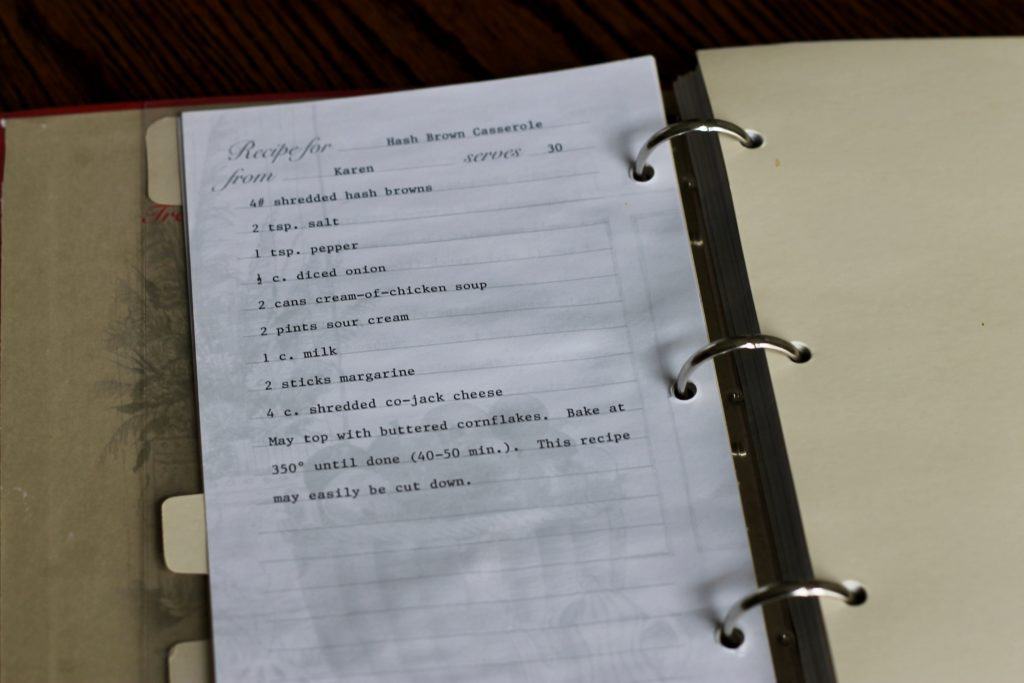 Recipe for Hash Brown Casserole
from Karen serves 30
4# shredded hash browns
2 tsp. salt
1 tsp. pepper
½ c. diced onion
2 cans cream-of-chicken soup
2 pints sour cream
1 c. milk
2 sticks margarine
4 c. shredded co-jack cheese
May top with buttered cornflakes. Bake at
350° until done (40-50 min.). This recipe
may easily be cut down.